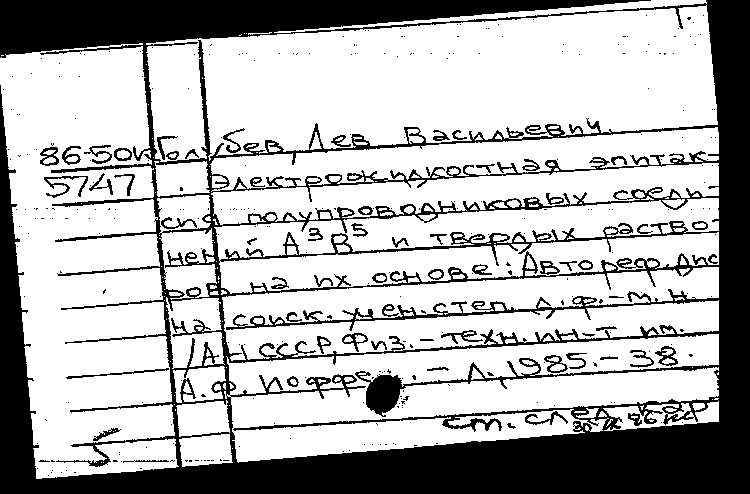 1.
86-50к Голубев, Лев Васильевич.
5747 . Электрожидкостная эпитак-
сия полупроводниковых соеди-
нений А³В⁵ и твердых раство-
ров на их основе: Автореф. дис
на соиск. учен. степ. д. ф.-м. н.
/АН СССР, Физ.-техн. ин-т им.
А. Ф. Иоффе. - Л., 1985. - 38.
см. след. кар
5